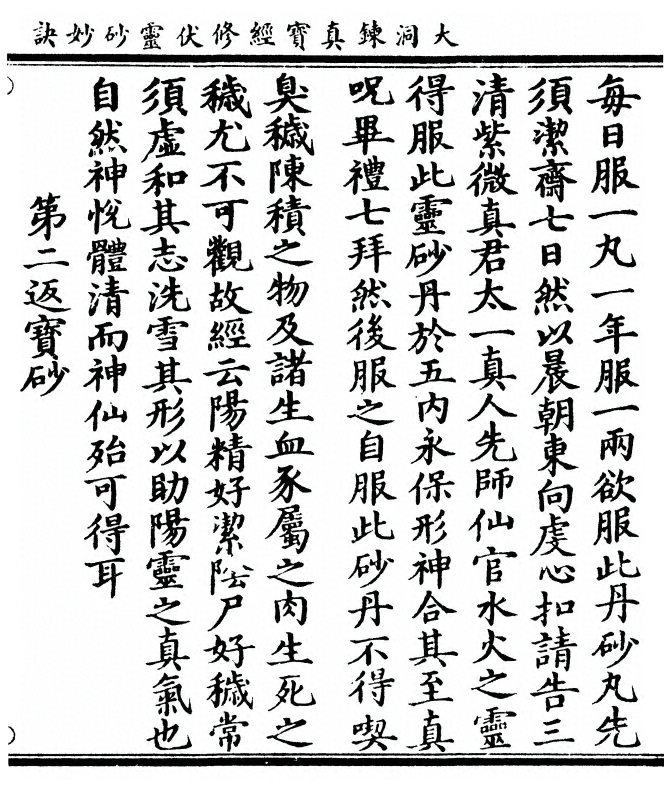 大洞鍊真寶經修伏靈砂妙訣
每日服一丸一年服一兩欲服此丹砂丸先
須潔齋七日然以晨朝東向虔心扣請告三
清紫微真君太一真人先師仙官水火之靈
得服此靈砂丹於五内永保形神合其至真
呪畢禮七拜然後服之自服此砂丹不得喫
臭穢陳積之物及諸生血豕屬之肉生死之
穢尤不可觀故經云陽精好潔陰尸好穢常
須虛和其志洗雪其形以助陽靈之真氣也
自然神悅體清而神仙殆可得耳
第二返寶砂